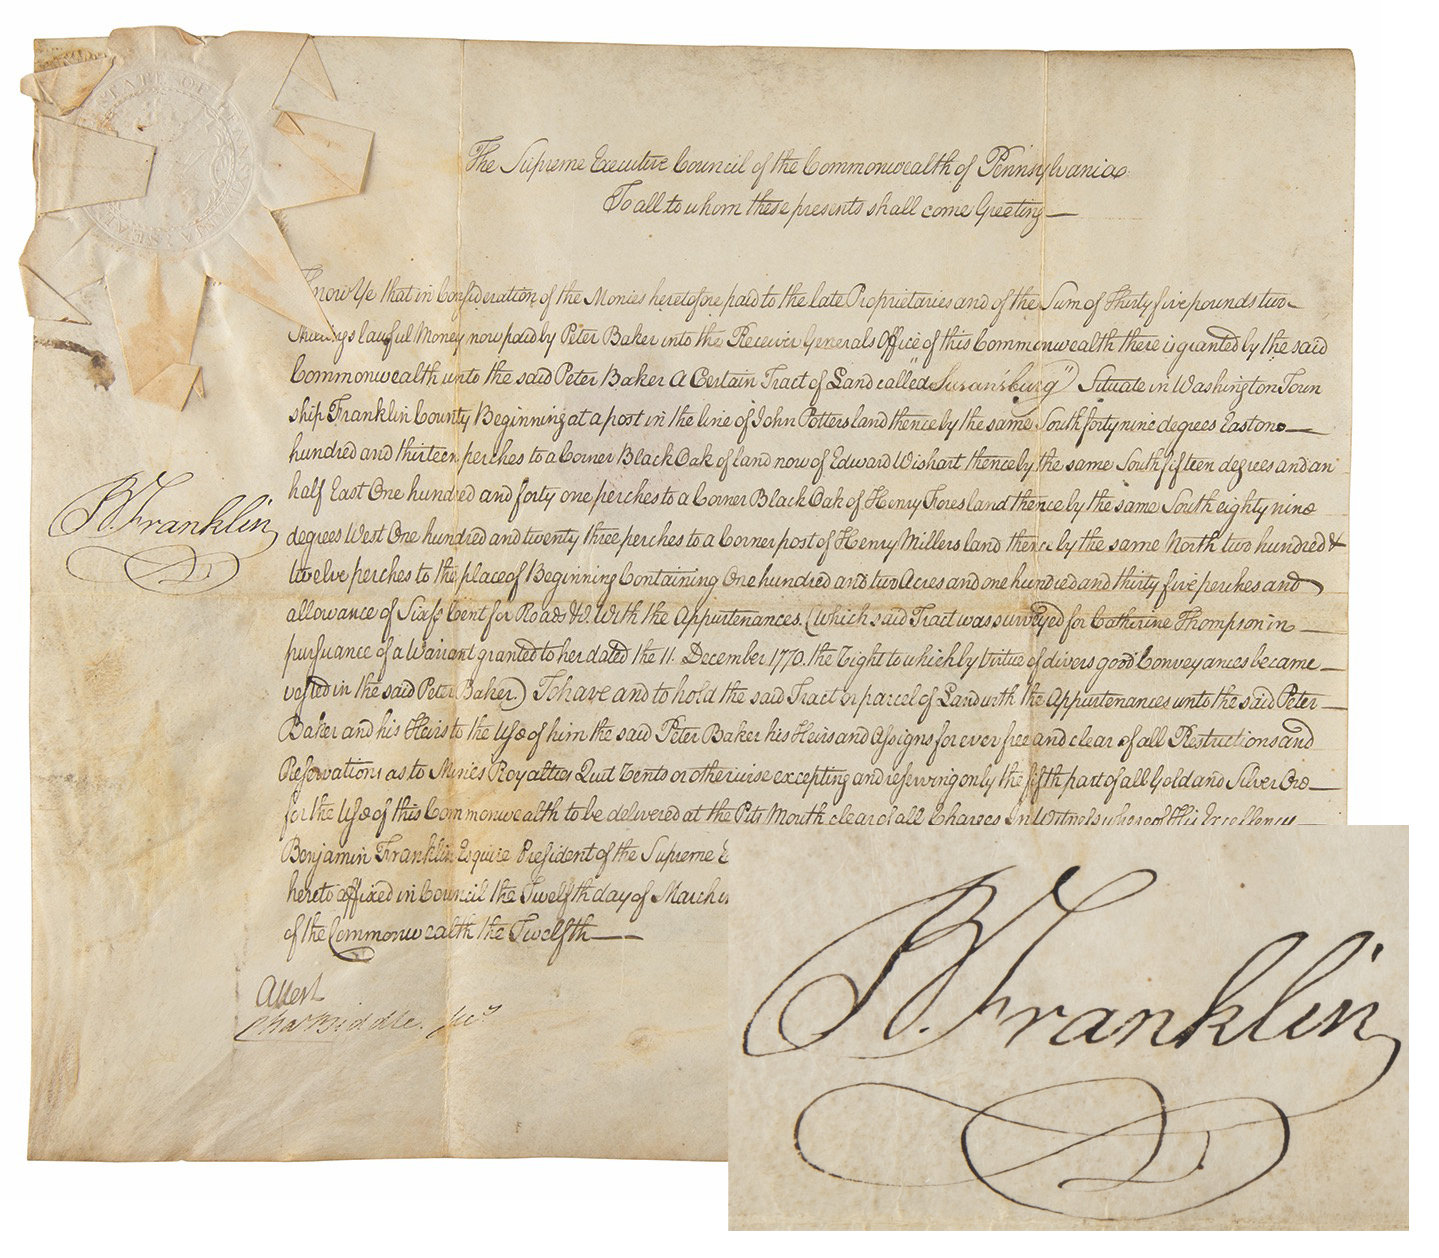 STATE OF PENNSYLVANIA SEAL
The Supreme Executive Council of the Commonwealth of Pennsylvania
To all to whom these presents shall come Greeting
Know Ye that in Consideration of the Monies heretofore paid to the late Proprietaries and of the Sum of Thirty five pounds two
Shillings lawful Money now paid by Peter Baker into the Receiver Generals Office of this Commonwealth there is granted by the said
Commonwealth unto the said Peter Baker A Certain Tract of Land called "Susansburg" Situate in Washington Town
ship Franklin County Beginning at a post in the line of John Potters land thence by the same South forty nine degrees East one
hundred and thirteen perches to a Corner Black Oak of land now of Edward Wishart thence by the same South fifteen degrees and an
half East One hundred and forty one perches to a Corner Black Oak of Henry Fores land thence by the same South eighty nine
degrees West One hundred and twenty three perches to a Corner post of Henry Millers land thence by the same North two hundred &
twelve perches to the place of Beginning Containing One hundred and two Acres and one hundred and thirty five perches and
allowance of Six ⅌ Cent for Roads &c. With the Appurtenances. (which said Tract was surveyed for Catherine Thompson in
pursuance of a Warrant granted to her dated the 11. December 1770. the Right to which by Virtue of divers good Conveyances became
vested in the said Peter Baker) To have and to hold the said Tract or parcel of Land with the Appurtenances unto the said Peter
Baker and his Heirs to the Use of him the said Peter Baker his Heirs and Assigns for ever free and clear of all Restrictions and
Reservations as to Mines Royalties Quit Rents or otherwise excepting and reserving only the fifth part of all Gold and Silver Ore
for the Use of this Commonwealth to be delivered at the Pits Mouth clear of all Charges In Witness whereof His Excellency
Benjamin Franklin Esquire President of the Supreme E
hereto affixed in Council the Twelfth day of March
of the Commonwealth the Twelfth
B. Franklin
Attest
Cha Biddle. Secy
B. Franklin